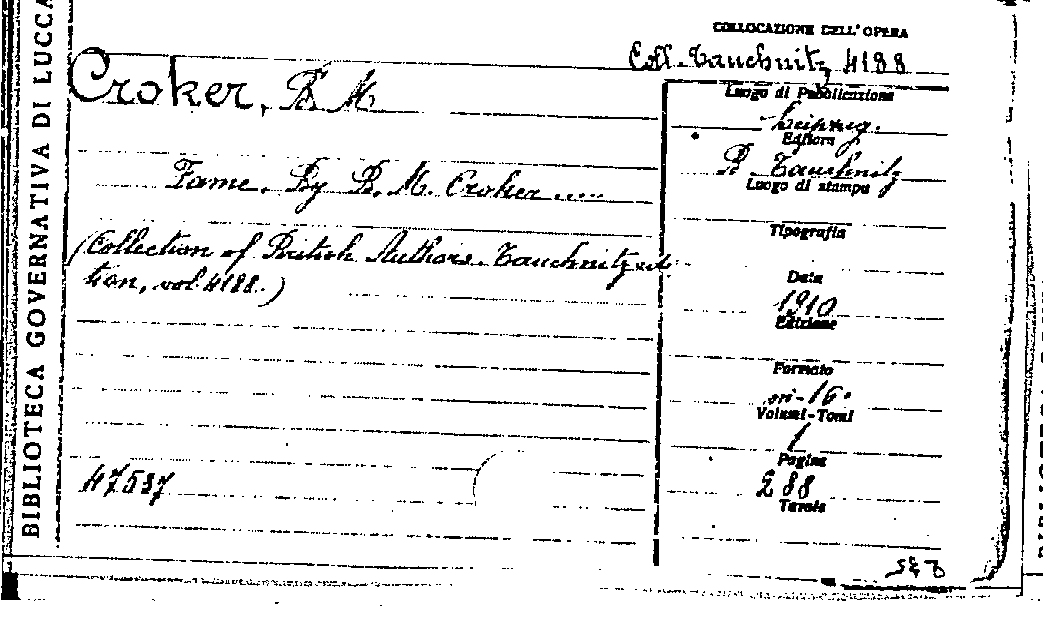 BIBLIOTECA GOVERNATIVA DI LUCCA
COLLOCAZIONE DELL'OPERA
Coll. Tauchnitz 4188
Croker, B. M.
Luogo di Pubblicazione
Leipzig.
Editore
B. Tauchnitz
Luogo di stampa
Fame. By B. M. Croker .....
Tipografia
(Collection of British Authors. Tauchnitz edi-
tion, vol. 4188.)
Data
1910
Edizione
Formato
in-16°
Volumi-Tomi
1
Pagine
288
Tavole
47537